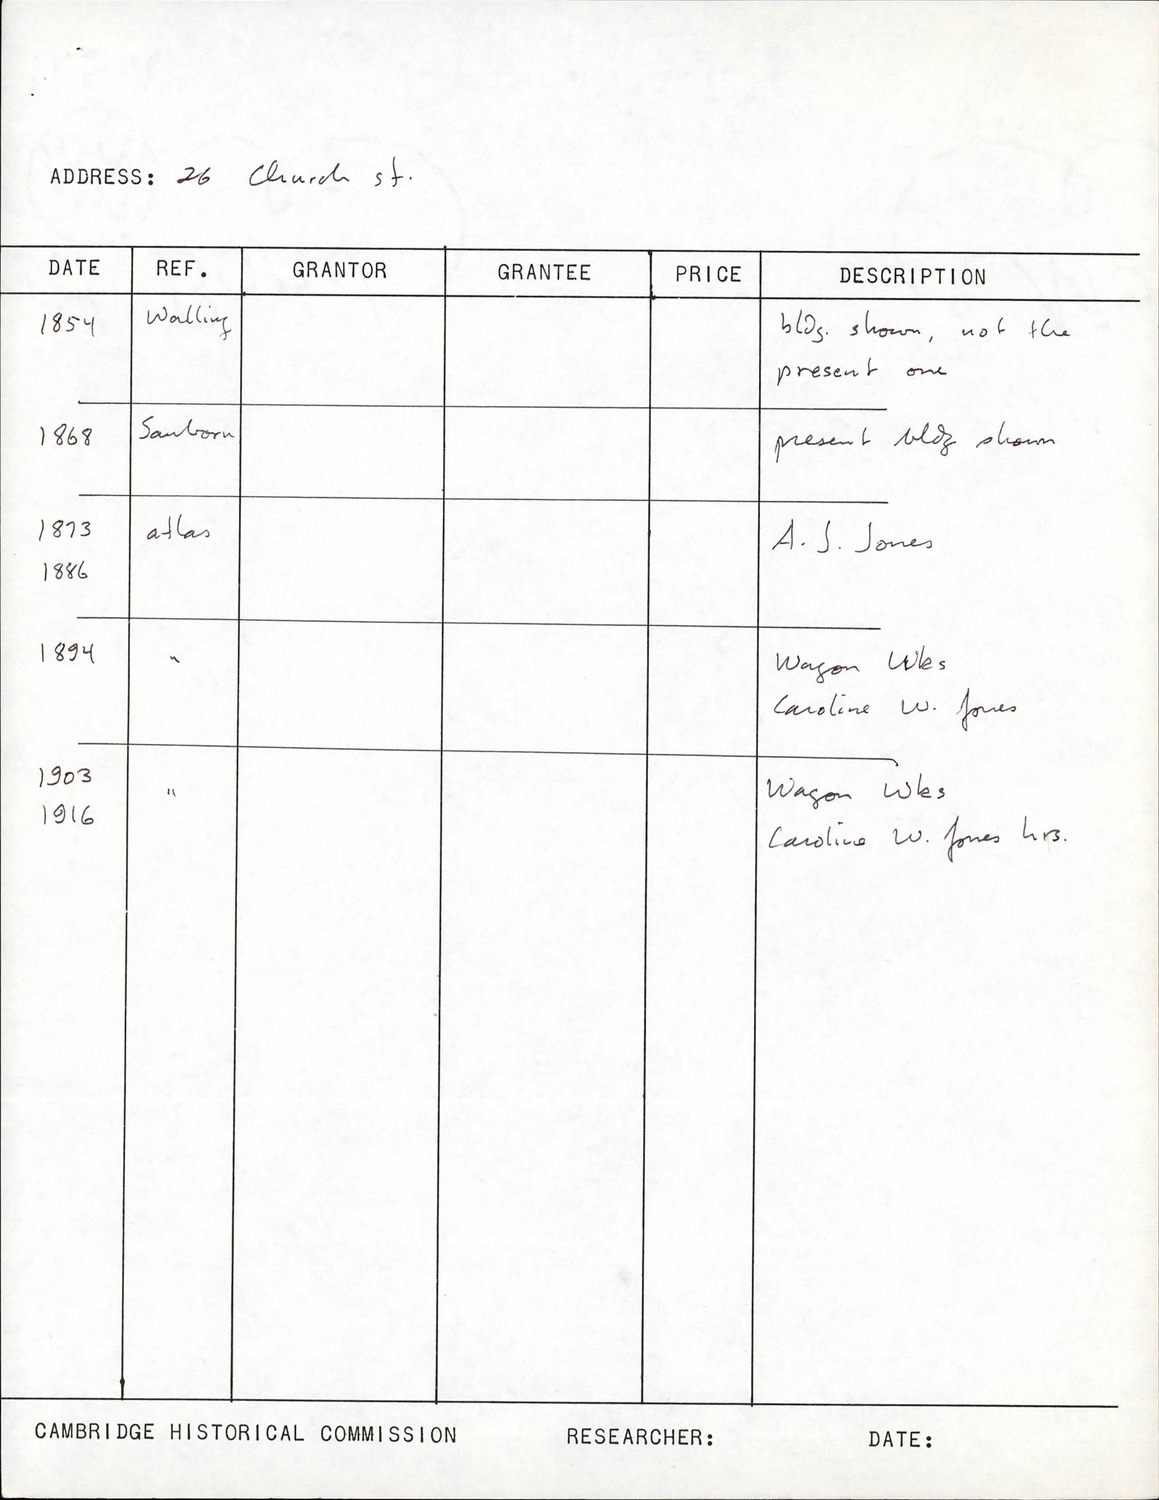 ADDRESS: 26 Church st.
DATE REF. GRANTOR GRANTEE PRICE DESCRIPTION
1854 Walling bldg. shown, not the
present one
1868 Sanborn present bldg shown
1873 atlas A. J. Jones
1886
1894 " Wagon Wks
Caroline W. Jones
1903 " Wagon Wks
1916 Caroline W. Jones hrs.
CAMBRIDGE HISTORICAL COMMISSION RESEARCHER: DATE: